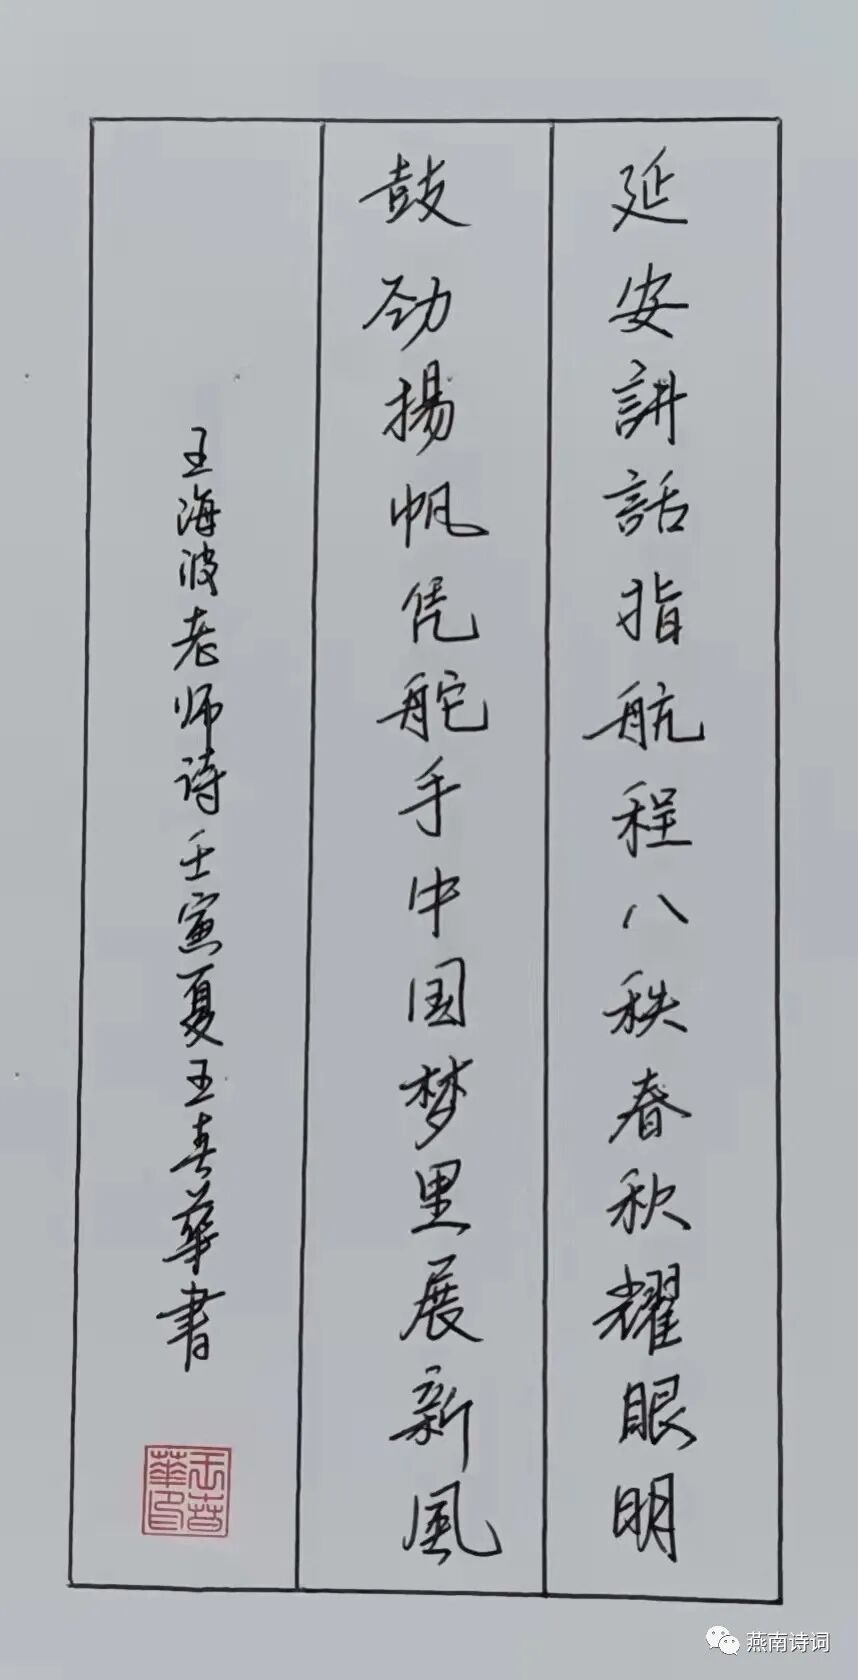 延安講話指航程八秩春秋耀眼明
鼓劲揚帆凭舵手中国梦里展新風
王海波老师诗壬寅夏王春華書
王春華印
燕南诗词